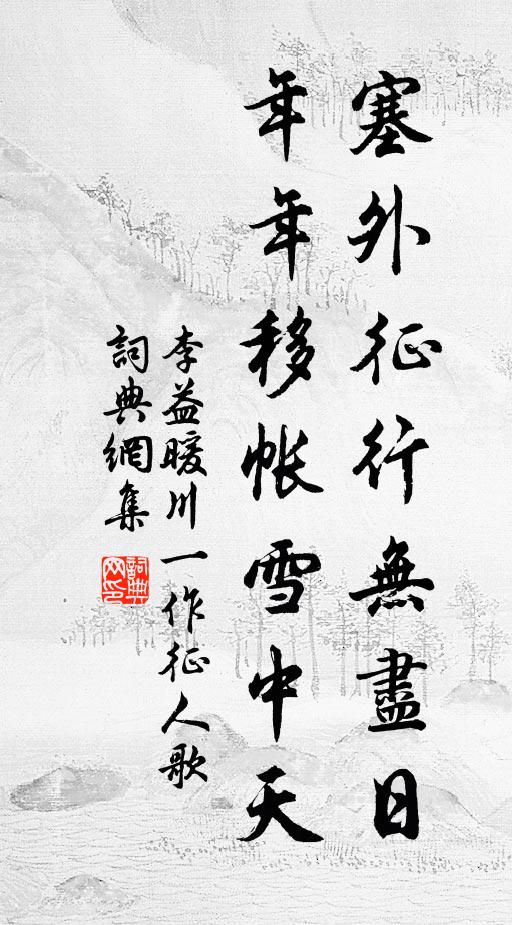 塞外征行無盡日
年年移帳雪中天
李益暖川一作征人歌
詞典網集
詞典網印